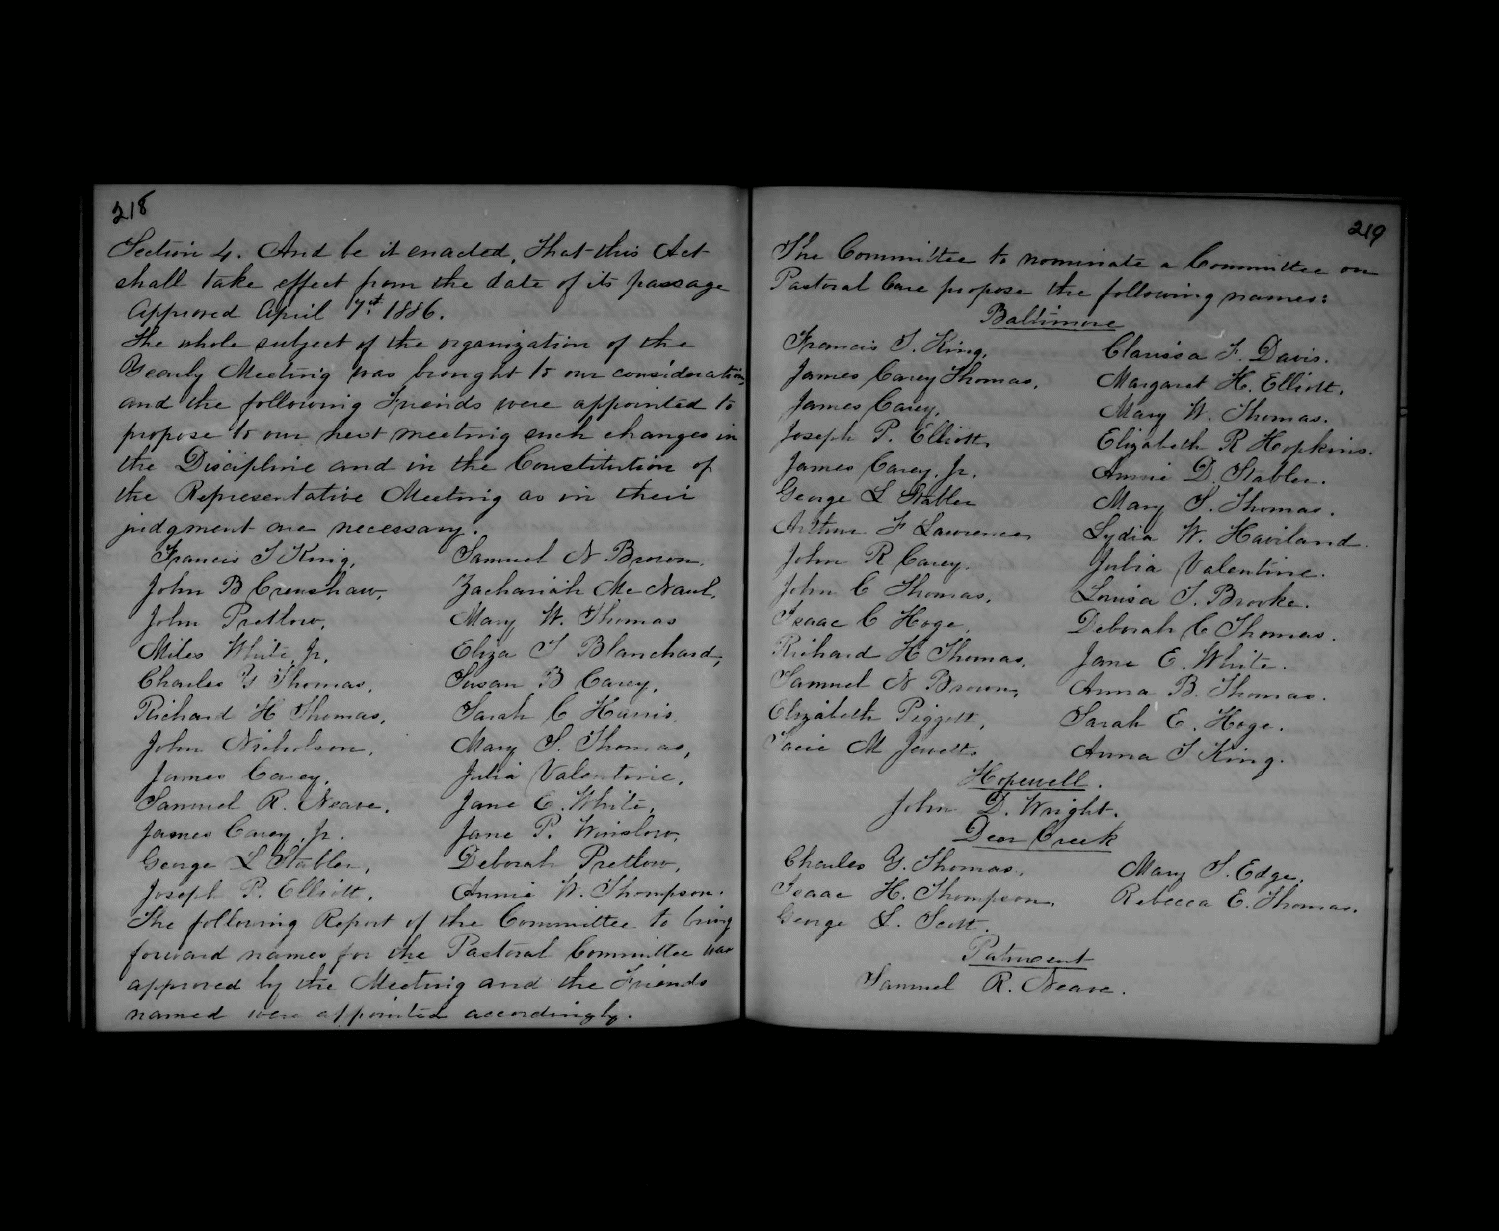 218
Section 4. And be it enacted, that this Act
shall take effect from the date of its passage
Approved April 7st 1886.
The whole subject of the organization of the
Yearly Meeting was brought to our consideration,
and the following Friends were appointed to
propose to our next meeting such changes in
the Discipline and in the Constitution of
the Representative Meeting as in their
judgment are necessary.
Francis T King, Samuel N Brown.
John B Crenshaw, Zachariah Mc Naul,
John Pretlow, Mary W. Thomas
Miles White Jr, Eliza S Blanchard,
Charles Y Thomas, Susan B Carey,
Richard H Thomas, Sarah C Harris
John Nicholson, Mary S. Thomas,
James Carey, Julia Valentine,
Samuel R. Neave, Jane E. White,
James Carey, Jr. Jane P. Winslow,
George L Stabler, Deborah Pretlow,
Joseph P. Elliott, Annie W. Thompson.
The following Report of the Committee to bring
forward names for the Pastoral Committee was
approved by the Meeting and the Friends
named were appointed accordingly.
219
The Committee to nominate a Committee on
Pastoral Care propose the following names:
Baltimore
Francis T. King, Clarissa F. Davis.
James Carey Thomas, Margaret H. Elliott,
James Carey, Mary W. Thomas.
Joseph P. Elliott, Elizabeth R Hopkins.
James Carey, Jr. Annie D. Stabler.
George L Stabler Mary S. Thomas.
Arthur F Lawrence, Lydia W. Haviland.
John R Carey. Julia Valentine.
John C Thomas, Louisa T. Brooke.
Isaac C Hoge, Deborah C Thomas.
Richard H Thomas, Jane E. White.
Samuel N Brown, Anna B. Thomas.
Elizabeth Piggott, Sarah E. Hoge.
M Jewett. Anna T King.
Hopewell.
John D. Wright.
Deer Creek
Charles Y. Thomas, Mary S. Edge,
Isaac H. Thompson, Rebecca E. Thomas.
George L. Scott.
Patuxent
Samuel R. Neave.